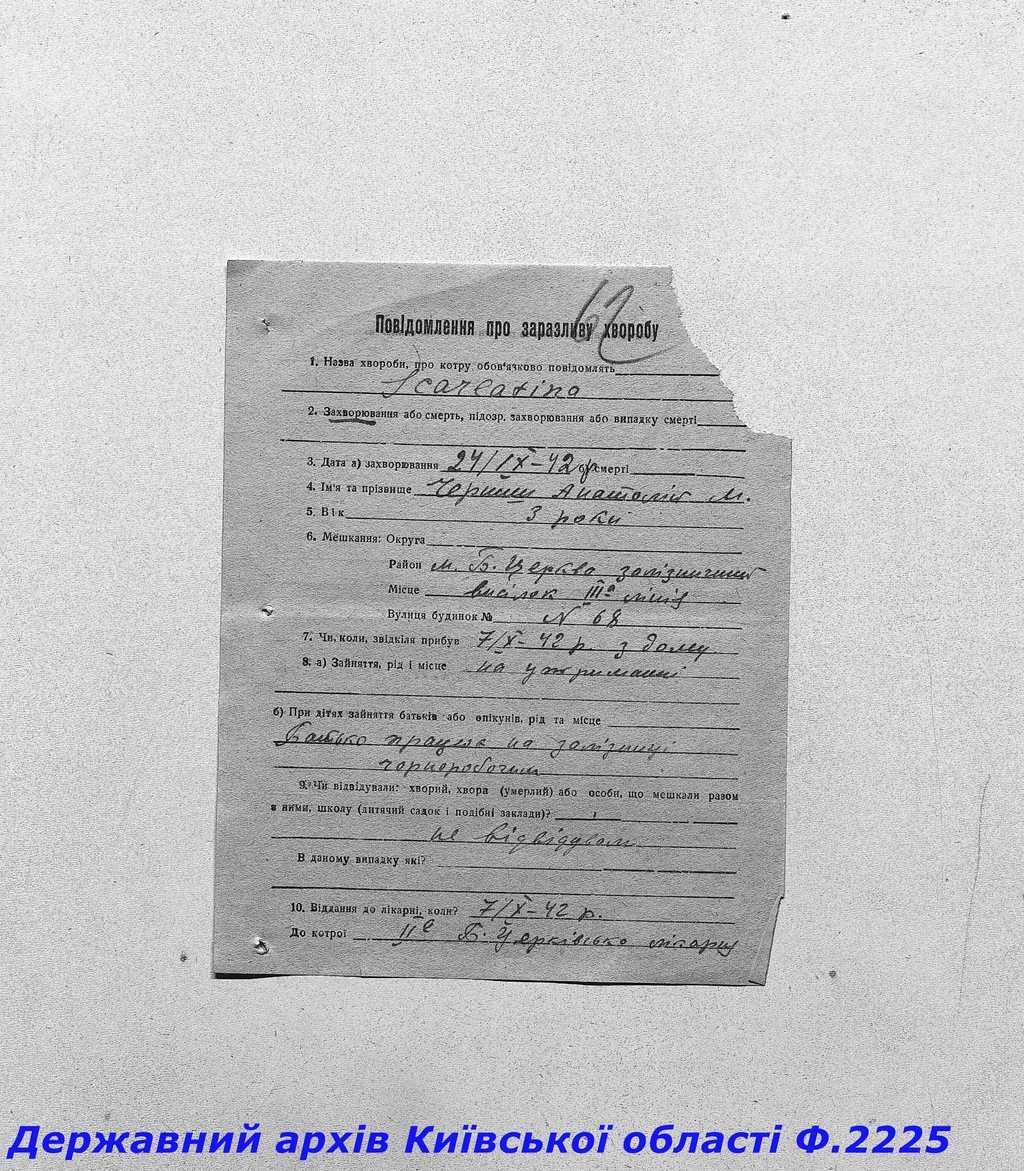 62
Повідомлення про заразливу хворобу
1. Назва хвороби, про котру обов'язково повідомлять
Scarlatina
2. Захворювання або смерть, підозр. захворювання або випадку смерті
3. Дата а) захворювання 24/IX-42 р. б) смерті
4. Ім'я та прізвище Анатолій М.
5. Вік 3 роки
6. Мешкання: Округа
Район м. Б. Церква залізничний
Місце висілок III-а лінія
Вулиця будинок № N 68
7. Чи, коли, звідкіля прибув 7/X-42 р. з дому
8. а) Зайняття, рід і місце на утриманні
б) При дітях зайняття батьків або опікунів, рід та місце
Батько працює на залізниці
чорноробочим
9. Чи відвідували: хворий, хвора (умерлий) або особи, що мешкали разом
з ними, школу (дитячий садок і подібні заклади)?
не відвідував
В даному випадку які?
10. Віддання до лікарні, коли? 7/X-42 р.
До котрої II Б. Церківсько лікарня
Державний архів Київської області Ф.2225